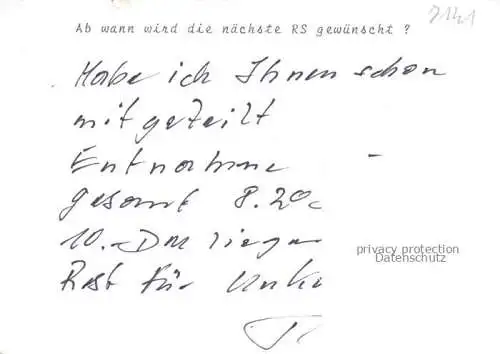 7141
Ab wann wird die nächste RS gewünscht ?
Habe ich Ihnen schon
mitgeteilt
Entnahme -
gesamt 8.20
10.- DM liegen
Rest für
privacy protection
Datenschutz